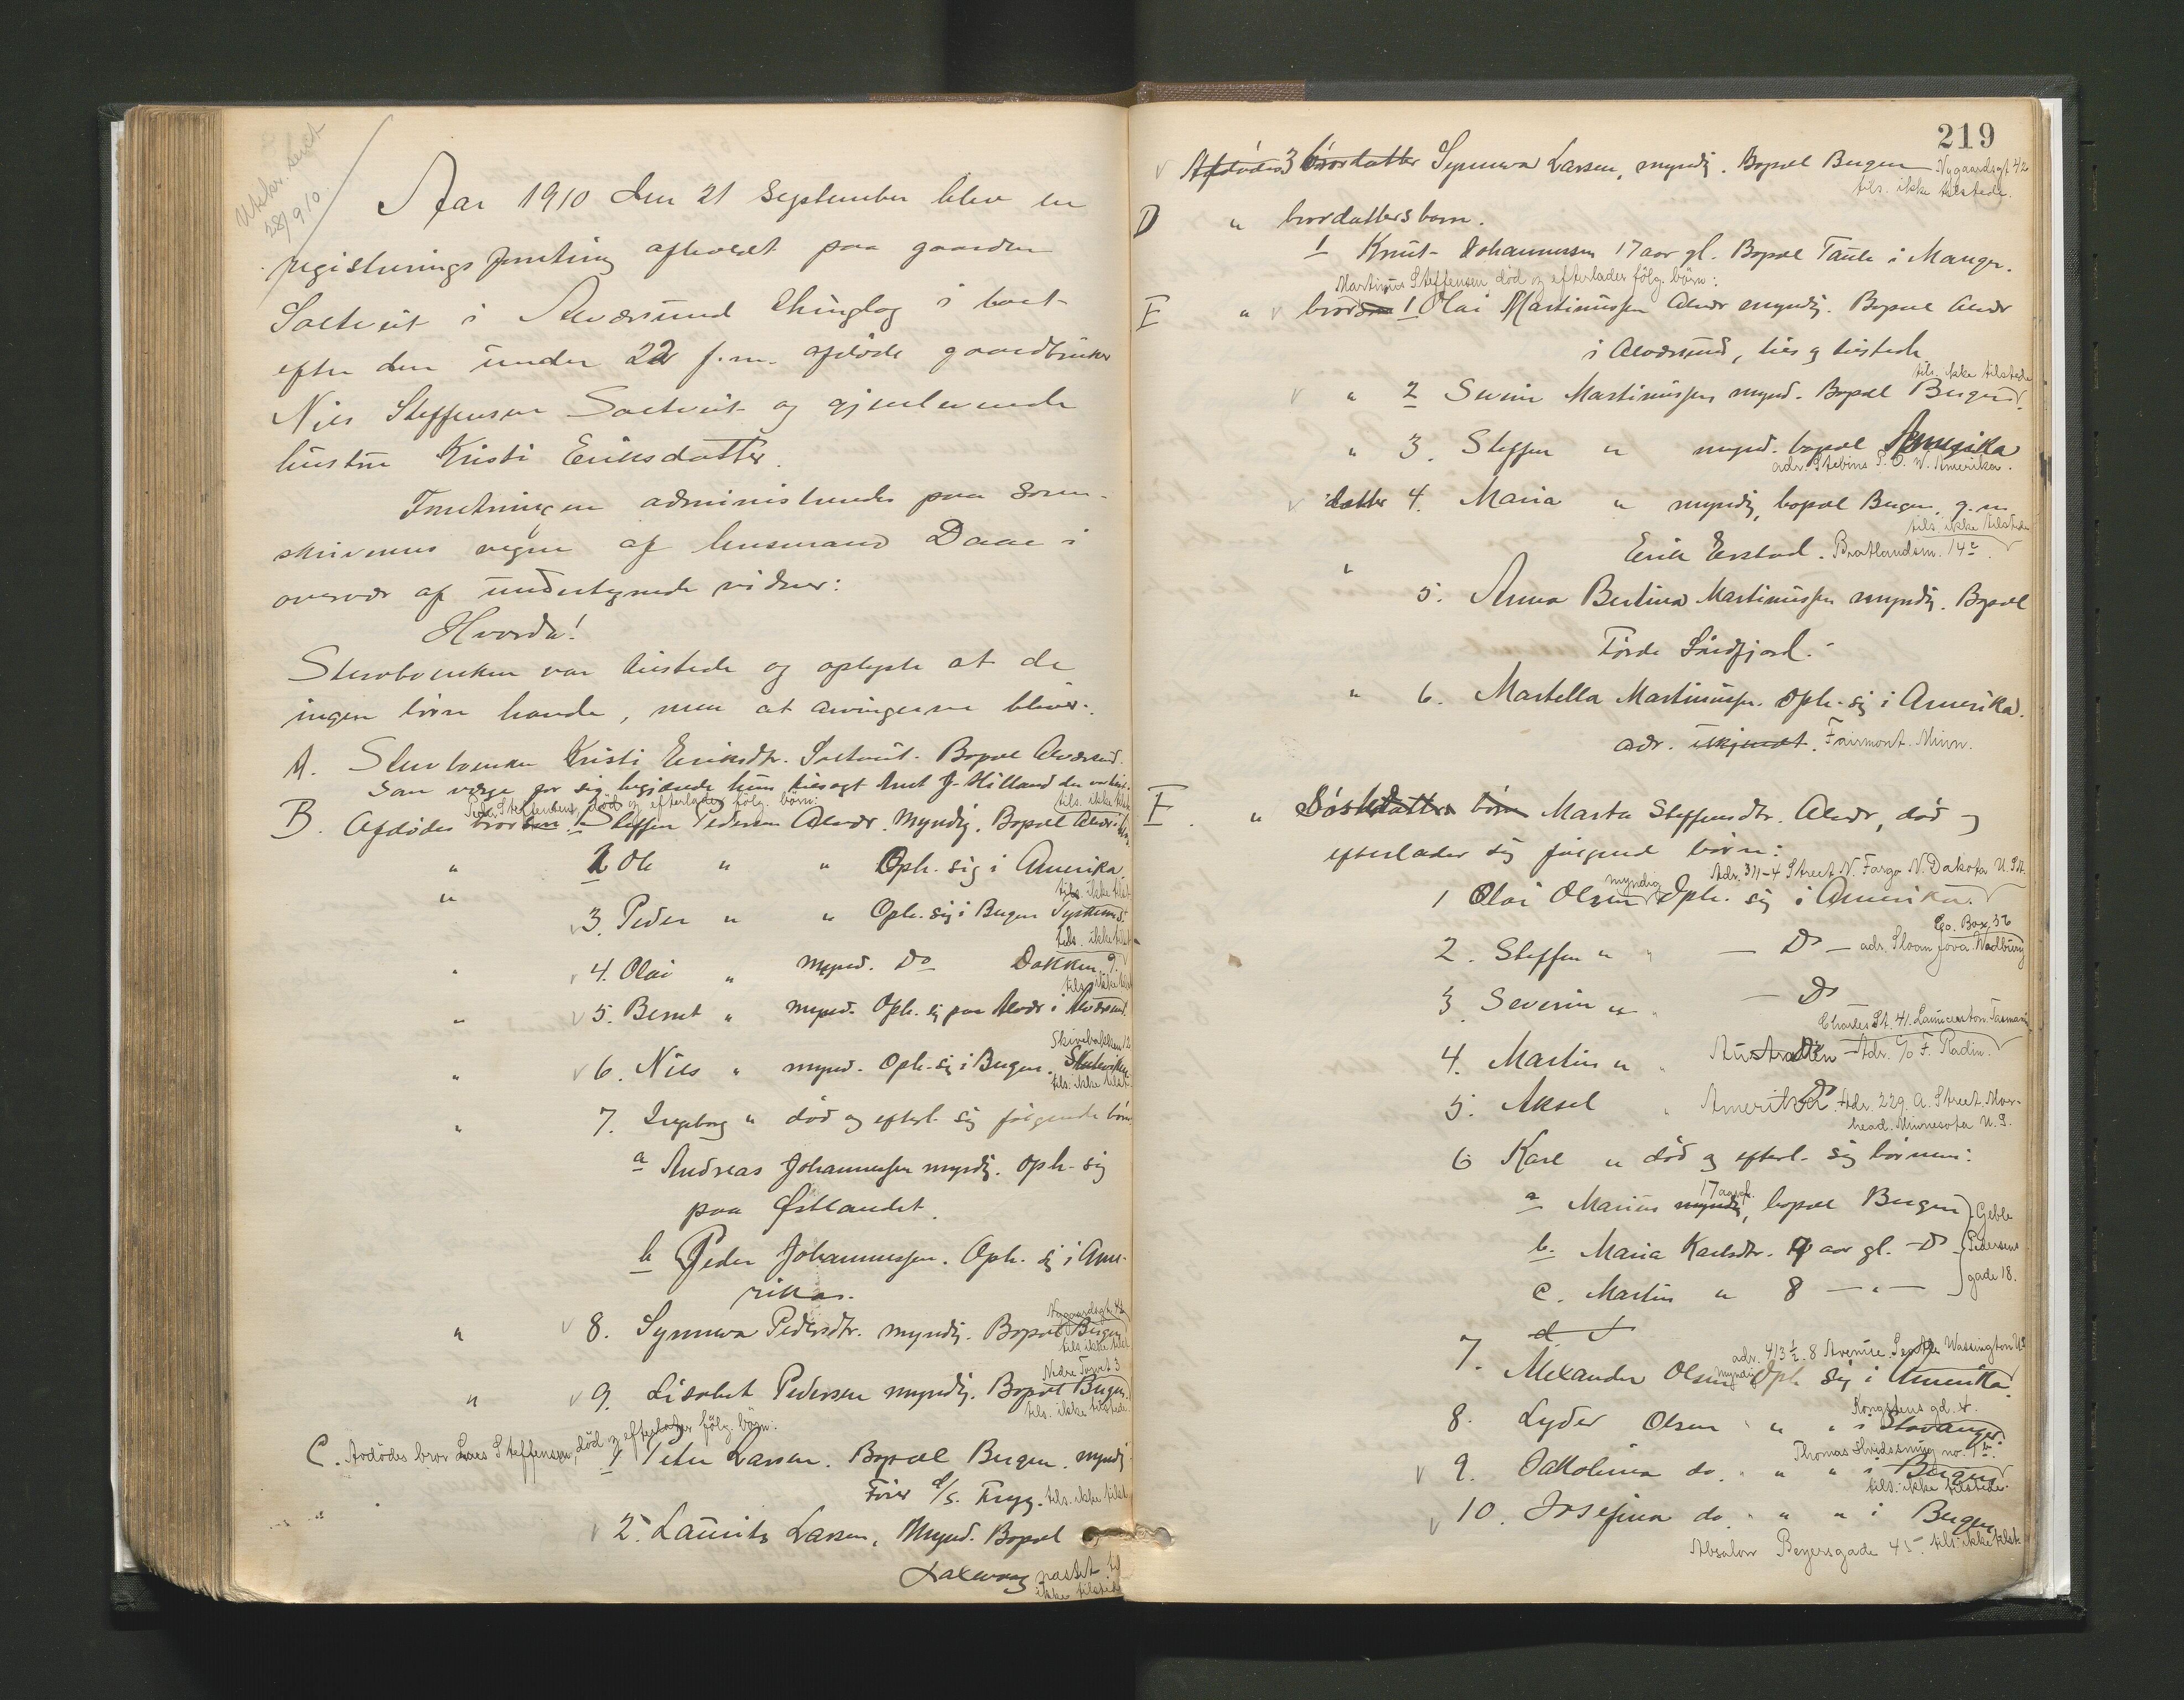 Utkor. sendt
28/9 10.
Aar 1910 den 21 September blev en
registreringsforretning afholdt paa gaarden
Soltveit i Alværsund thinglag i boet
efter den under 22 f.m. afdøde gaardbruker
Nils Steffensen Soltveit og gjenlevende
hustru Kristi Eriksdatter.
Forretningen administredes paa soren-
skriverens vegne af lensmand Daae i
overvær af undertegnede vidner:
Hvorda!
Stervboenken var tilstede og oplyste at de
ingen børn havde, men at arvingerne bliver:
A. Stervboenken Kristi Eriksdtr. Soltveit. Bopæl Alværsund.
Som verge for sig begjærede hun tilsagt Knut J. Hilland der var tilst.
Peder Steffensens, død og efterlader følg. børn: tils. ikke tilst.
B. Afdødes brorsøn 1 Steffen Pedersen Alvær. Myndig. Bopæl Alvær i
" 2 Ole " " Oph. sig i Amerika.
tils. ikke tilst
" 3. Peder " " Oph. sig i Bergen
tils. ikke tilst
" 4. Olai " mynd. Do Dokken 9.
tils. ikke tilst
" 5. Bernt " mynd. Oph. sig paa Alvær i Alværsund.
Skivebakken 12
" 6. Nils " mynd. Oph. sig i Bergen.
tils. ikke tilst.
" 7. Ingeborg " død og efterl. sig følgende børn
a Andreas Johannessen myndig. oph. sig
paa Østlandet.
b Peder Johannessen. Oph. sig i Ame-
rika.
Nygaardsgt. 42
" 8. Synneva Pedersdtr. myndig. Bopæl Bergen
tils. ikke tilst
Nedre Torvet 3
" 9. Lisabet Pedersen myndig. Bopæl Bergen.
tils. ikke tilstede
C. Avdødes bror Lars Steffensen, død og efterlader følg. børn:
1 Peter Larsen. Bopæl Bergen. myndig
Fører d/s. Trygg. tils. ikke tilst
" 2. Laurits Larsen, Mynd. Bopæl
Laxevaag. tils.
ikke tilstede
219
Afdødes 3 brordatter Synneva Larsen, myndig. Bopæl Bergen Nygaardsgt 42
tils. ikke tilstede.
D " brordatters barn.
1 Knut Johannessen 17 aar gl. Bopæl Taule i Manger.
Martinus Steffensen død og efterlader følg. børn:
E " brorsøn 1 Olai Martinussen Alvær myndig. Bopæl Alvær
i Alværsund, tils og tilstede
tils. ikke tilstede
" 2 Severin Martinussen mynd. Bopæl Bergen.
" 3. Steffen " mynd. bopæl Amerika
adr. Stebins P. O. W. Amerika.
datter 4. Maria " myndig, bopæl Bergen, g. m.
tils ikke tilstede
Erik Erstad. Bratlandsm. 14a.
" 5. Anna Bertina Martinussen myndig. Bopæl
Førde Søndfjord.
" 6. Martella Martinussen. oph. sig i Amerika.
adr. ukjendt. Fairmont. Minn.
F. " Søsterdatters børn Marta Steffensdtr. Alvær, død og
efterlader sig følgende børn:
Adr. 311-4 Street N. Fargo N. Dakota U. St.
myndig
1 Olai Olsen Oph. sig i Amerika.
Co. Box 36
2. Steffen " " — Do — adr. Sloan Jova. Wodbury
3. Severin " " — Do
Charles St. 41. Launceston. Tasmania
4. Martin " " Australien Adr. c/o F. Radin.
5. Aksel " Amerika Adr. 229. A. Street. Mor-
head. Minnesota U. S.
6 Karl " død og efterl. sig børnene:
17 aar gl.
a Marius myndig, bopæl Bergen Geble
b. Maria Karlsdtr. 9 aar gl. Do Pedersens
c. Martin " 8 — " — gade 18.
d
adr. 413 ½. 8 Avenue. Seattle Wassington U.S
7. Alexander Olsen myndig Oph. sig i Amerika.
Kongstens gd. 4.
8. Lyder Olsen " " " i Stavanger.
9. Jakobina do. " " " i Bergen
tils. ikke tilstede.
10. Josefina do. " " " i Bergen
Absalon Beyersgade 45. tils. ikke tilst